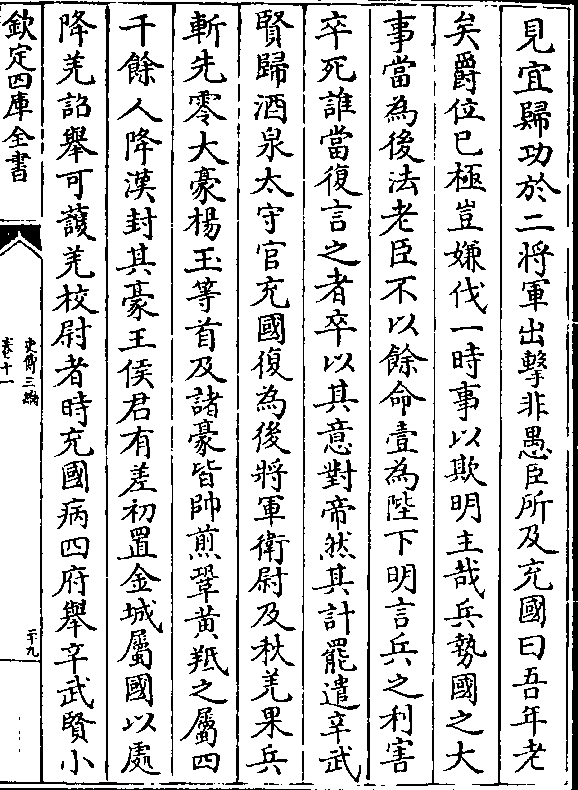 見宜歸功於二將軍出擊非愚臣所及充國曰吾年老
矣爵位已極豈嫌伐一時事以欺明主哉兵勢國之大
事當為後法老臣不以餘命壹為陛下明言兵之利害
卒死誰當復言之者卒以其意對帝然其計罷遣辛武
賢歸酒泉太守官充國復為後將軍衛尉及秋羌果兵
斬先零大豪楊玉等首及諸豪皆帥煎鞏黃羝之屬四
千餘人降漢封其豪王侯君有差初置金城屬國以處
降羌詔舉可護羌校尉者時充國病四府舉辛武賢小
欽定四庫全書
史傳三編
卷十一
二十九